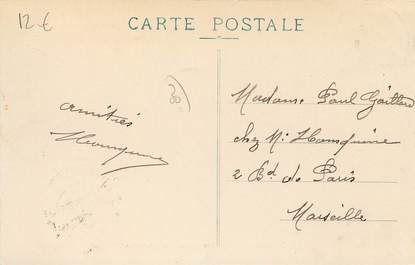 12€
CARTE POSTALE
amitiés
Madame Paul Gaillard
chez Mr
2 Bd de Paris
Marseille